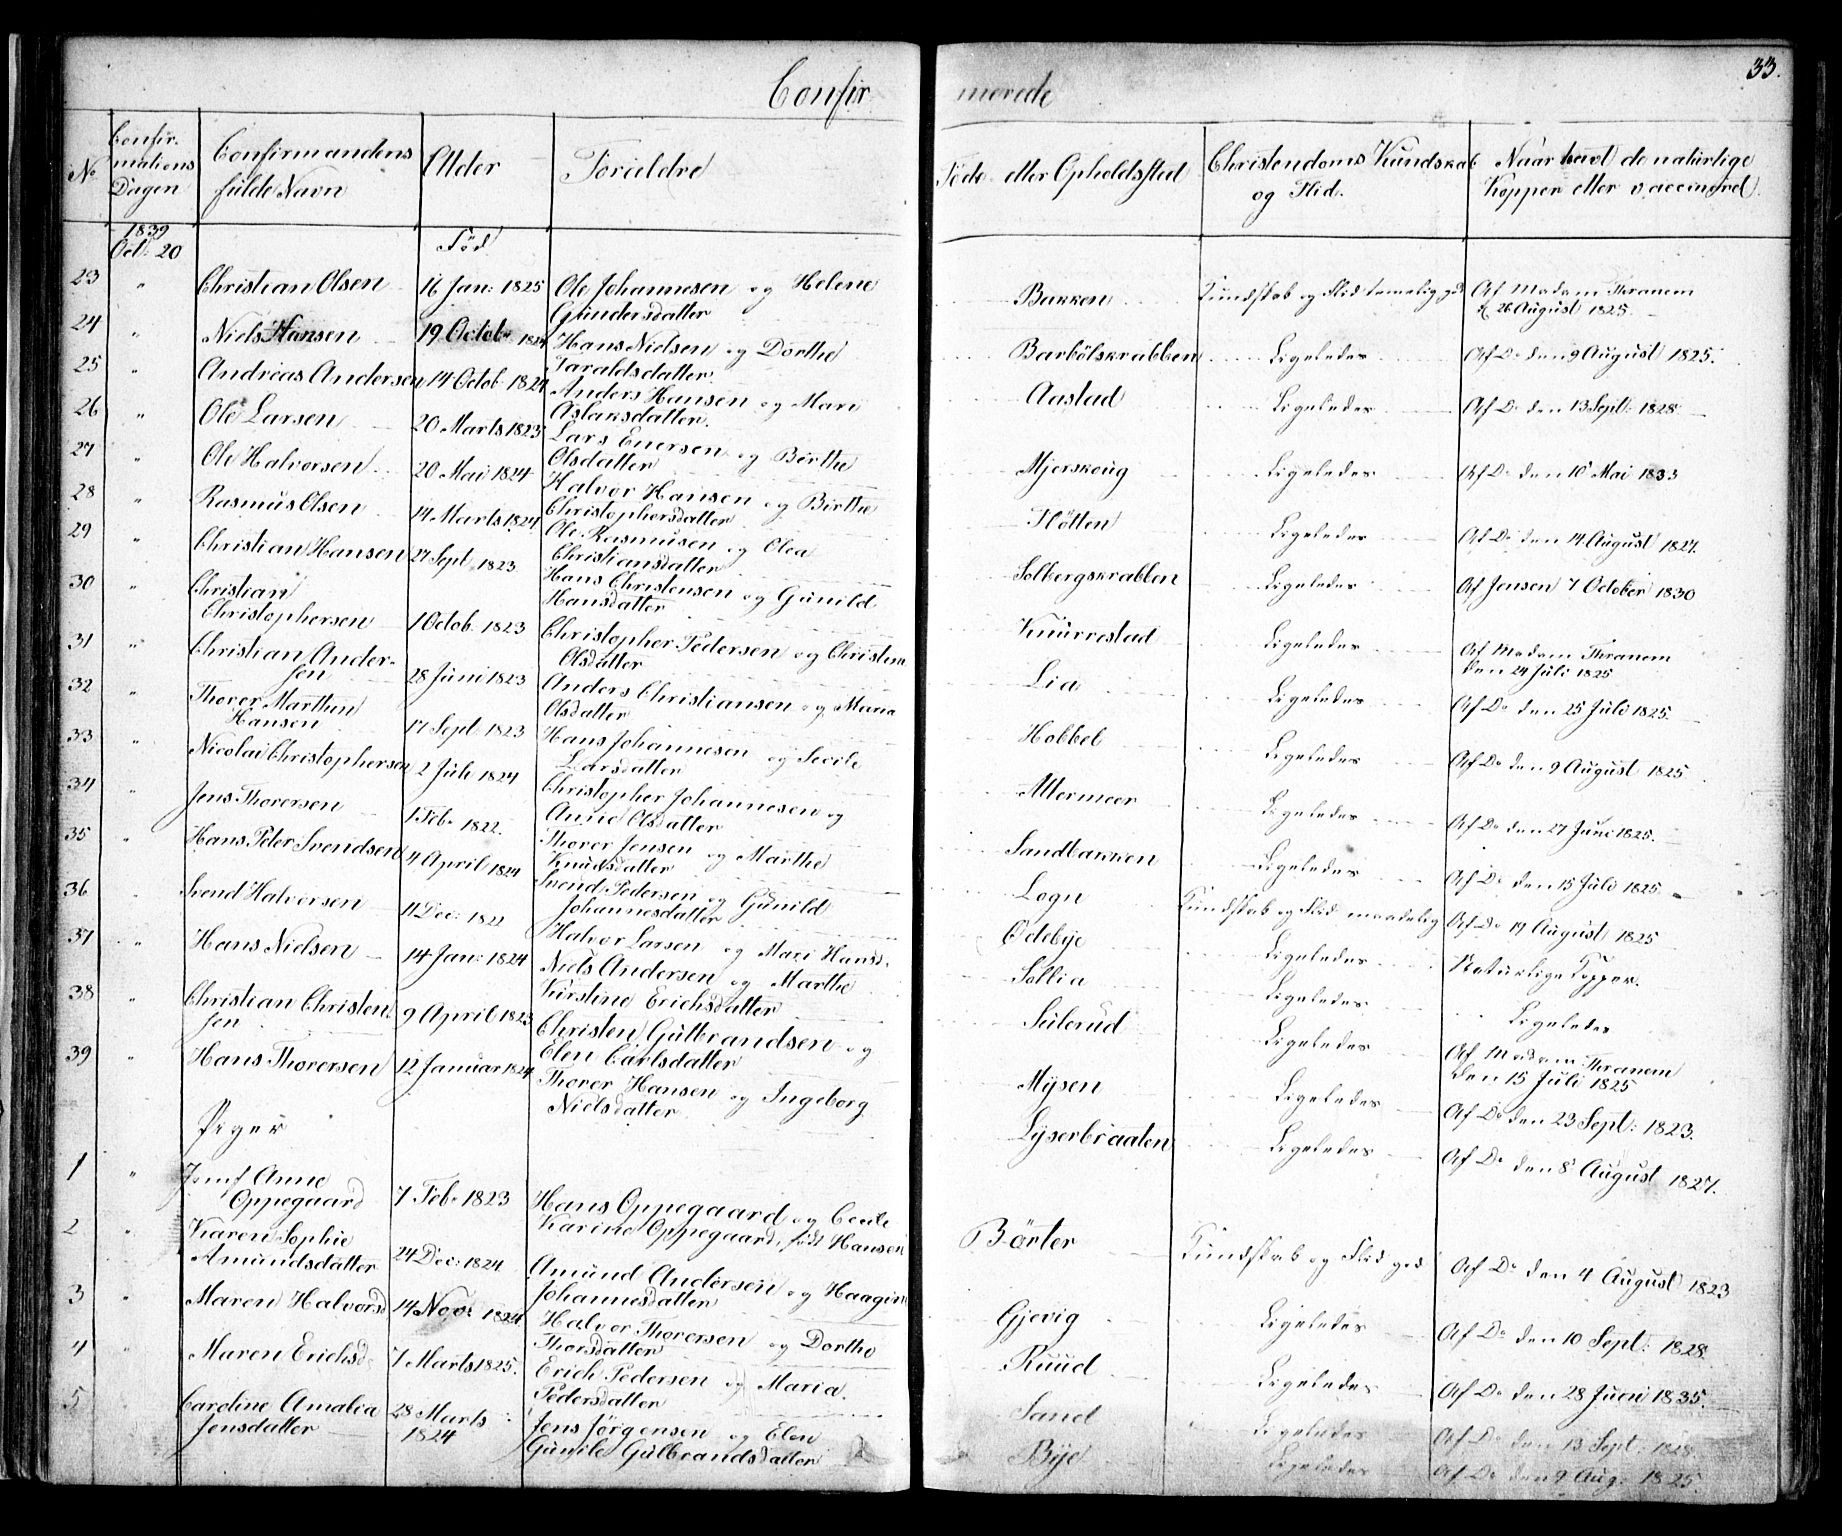 33.
Confirmerede
No
Confir-
mations
Dagen
Confirmandens
fulde Navn
Alder
Forældre
Føde eller Opholdssted
Christendoms Kundskab
og Flid.
Naar havt de naturlige
Kopper eller vaccineret.
1839
Oct: 20
Fød
23 " Christian Olsen 16 Jan: 1825 Ole Johannesen og Helene Bakken Kundskab og Flid temelig god Af Madam Thranem
Gundersdatter d 26 August 1825
24 " Niels Hansen 19 Octob: 1824 Hans Nielsen og Dorthe Barbölskrabben Ligeledes Af Do den 9 August 1825.
Taraldsdatter
25 " Andreas Andersen 14 Octob 1824 Anders Hansen og Mari Aastad Ligeledes Af Do den 13 Sept: 1828
Aslaksdatter.
26 " Ole Larsen 20 Marts 1823 Lars Enersen og Birthe Mjerskoug Ligeledes Af Do den 10 Mai 1833
Olsdatter
27 " Ole Halvorsen 20 Mai 1824 Halvor Hansen og Birthe Fløtten Ligeledes Af Do den 14 August 1827.
Christophersdatter
28 " Rasmus Olsen 14 Marts 1824 Ole Rasmusen og Olea Solbergskrabben Ligeledes Af Jensen 7 October 1830
Christiansdatter
29 " Christian Hansen 27 Sept 1823 Hans Christensen og Gunild Knurrestad Ligeledes Af Madam Thranem
Hansdatter den 24 Juli 1825
30 " Christian
Christophersen 1 Octob 1823 Christopher Pedersen og Christine Lia Ligeledes Af Do den 25 Juli 1825.
Olsdatter
31 " Christian Ander-
sen 28 Juni 1823 Anders Christiansen og Maria Hobbel Ligeledes Af Do den 9 August 1825
Olsdatter
32 " Thorer Marthin
Hansen 17 Sept 1823 Hans Johannesen og Secile Altermeer Ligeledes Af Do den 27 Juni 1825.
Larsdatter
33 " Nicolai Christophersen 2 Juli 1824 Christopher Johannesen og Sandbakken Ligeledes Af Do den 15 Juli 1825
Anne Olsdatter
34 " Jens Thorersen 1 Feb: 1822. Thorer Jensen og Marthe Logn Kundskab og Flid maadelig Af Do 19 August 1825
Knudsdatter
35 " Hans Peter Svendsen 4 April 1824 Svend Pedersen og Gunild Ödebye Ligeledes Naturlige Kopper.
Johannesdatter
36 Svend Halvorsen 11 Dec: 1822 Halvor Larsen og Mari Hansd. Sollia Ligeledes Ligeledes
37 " Hans Nielsen 14 Jan: 1824 Niels Andersen og Marthe Seilerud Ligeledes Af Madam Thranem
Kirstine Erichsdatter den 15 Juli 1825
38 " Christian Christen-
sen 9 April 1823 Christen Gulbrandsen og Mysen Ligeledes Af Do den 23 Sept: 1823.
Elen Carlsdatter
39 " Hans Thorersen 12 Januar 1824 Thorer Hansen og Ingeborg Lyserbraaten Ligeledes Af Do den 8 August 1827.
Nielsdatter
Piger
1 " Jomf Anne
Oppegaard 7 Feb: 1823 Hans Oppegaard og Cecile Börter Kundskab og Flid god Af Do den 4 August 1823
Karine Oppegaard, født Hansen
2 " Karen Sophie
Amundsdatter 24 Dec: 1824 Amund Andersen og Haagine Gjevig Ligeledes Af Do den 10 Sept: 1828.
Johannesdatter
3 " Maren Halvorsd 14 Nov: 1824 Halvor Thorersen og Dorthe Ruud Ligeledes Af Do den 28 Juni 1835.
Thorsdatter
4 " Maren Erichsd 7 Marts 1825. Erich Pedersen og Maria Sand Ligeledes Af Do den 13 Sept: 1828.
Pedersdatter
5 Caroline Amalia 28 Marts Jens Jörgensen og Elen Bye Ligeledes Af Do den 9 Aug: 1825.
Jensdatter 1824 Gunile Gulbrandsdatter